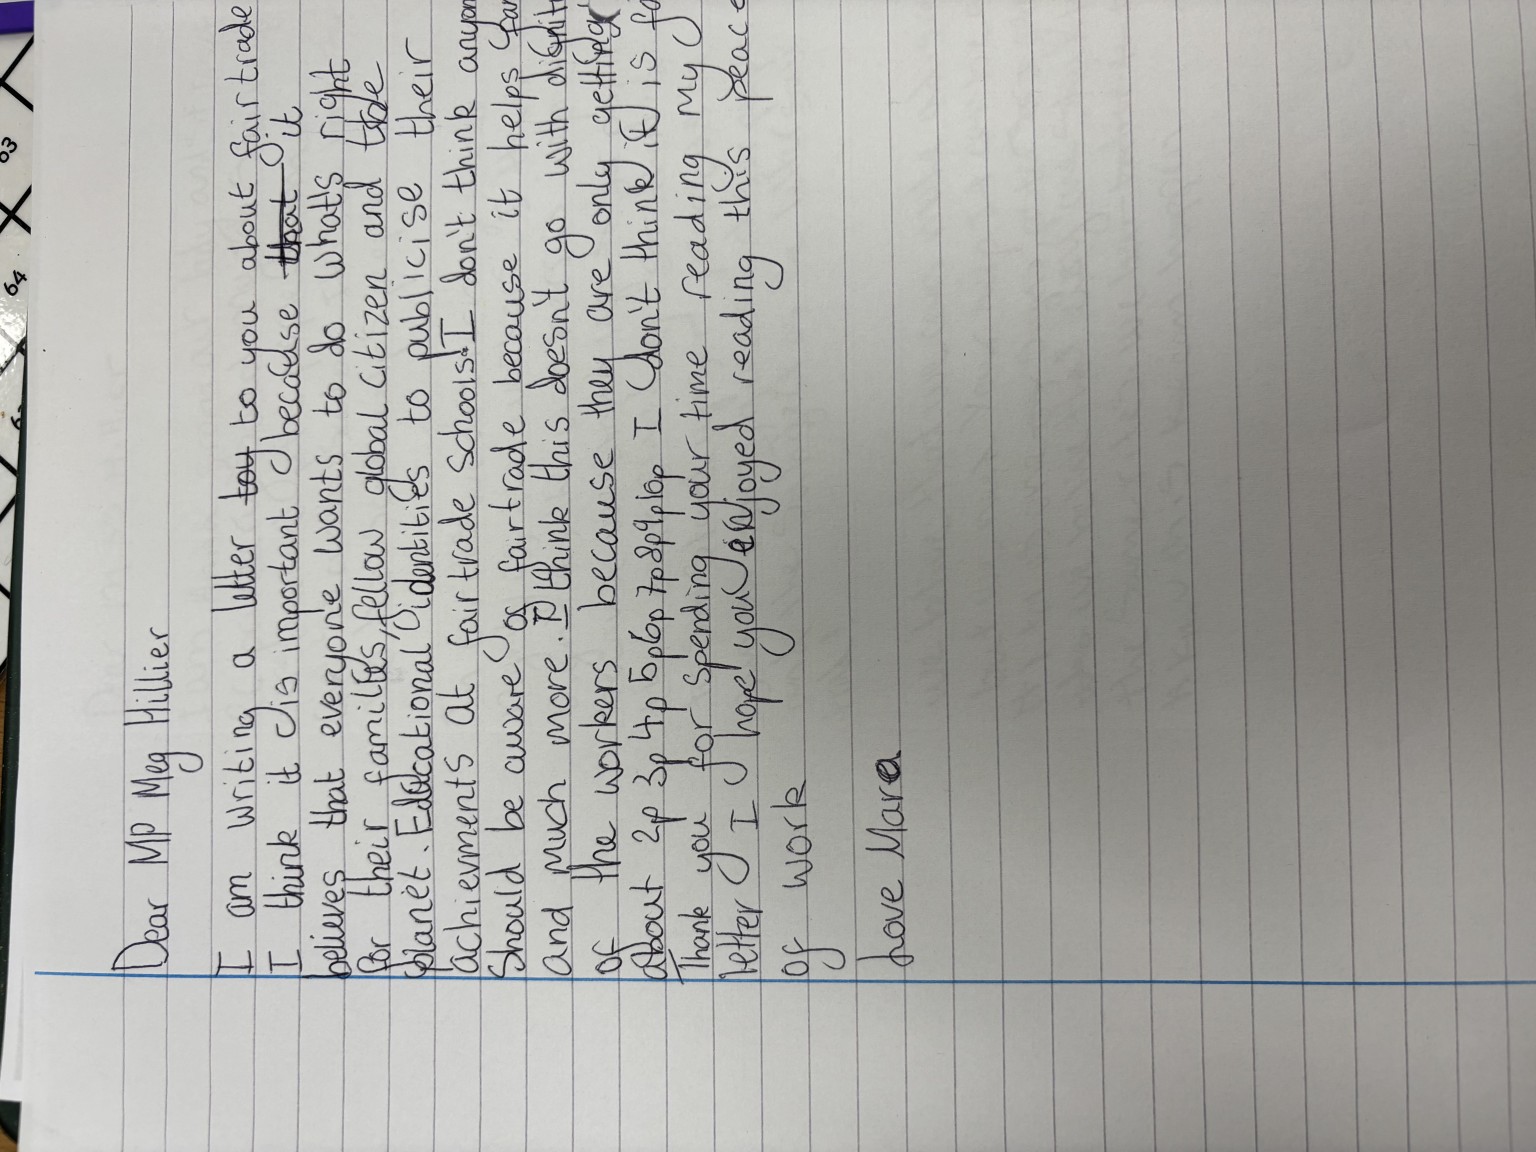 Dear MP Meg Hillier
I am writing a letter to you about fairtrade
I think it is important because it
believes that everyone wants to do what's right
for their families, fellow global citizen and the
planet. Educational identities to publicise their
achievments at fairtrade schools. I don't think
Should be aware of fairtrade because it helps
and much more. I think this doesn't go with
of the workers because they are only getting
about 2p 3p 4p 5p 6p 7p 8p 9p 10p I don't think it is
Thank you for spending your time reading my
letter I hope you enjoyed reading this peace
of work
Love Mara
63
64